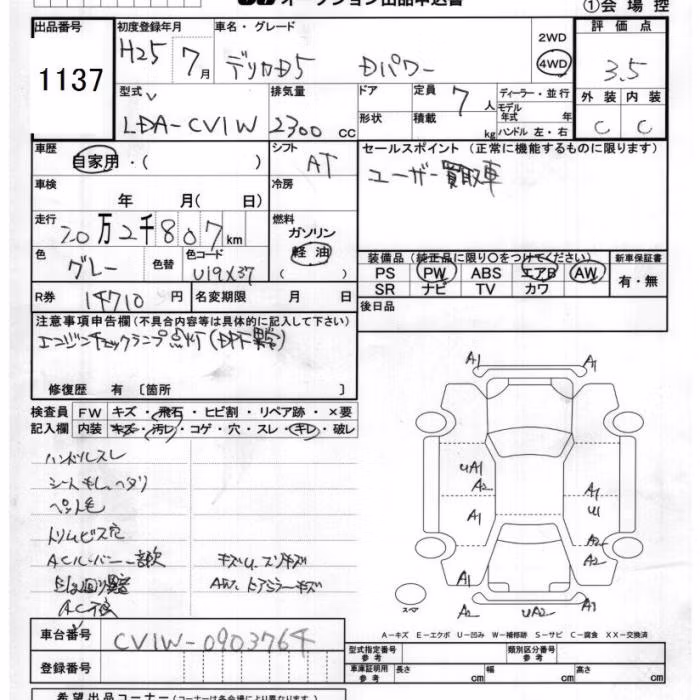 オークション出品申込書
①会場控
出品番号 初度登録年月 車名・グレード 評価点
1137 H25年 7月 デリカD5 Dパワー 2WD 4WD 3.5
型式 排気量 ドア 定員 7人 ディーラー・並行 外装 内装
LDA-CV1W 2300cc 形状 積載 kg モデル年式 年 C C
ハンドル 左・右
車歴 シフト セールスポイント (正常に機能するものに限ります)
自家用・( ) AT ユーザー買取車
車検 冷房
年 月( 日)
走行 燃料
20万2千807km ガソリン
軽油
( )
色 色替 色コード 装備品(純正品に限り○をつけてください) 新車保証書
グレー U19X37 PS PW ABS エアB AW 有・無
SR ナビ TV カワ
R券 14710円 名変期限 月 日 後日品
注意事項申告欄(不具合内容等は具体的に記入して下さい)
エンジンチェックランプ点灯(DPF異常)
修復歴 有 [箇所 ]
検査員 FW キズ・飛石・ヒビ割・リペア跡・×要
記入欄 内装 キズ・汚レ・コゲ・穴・スレ・キレ・破レ
ハンドルスレ
シート
ペット毛
トリムビス穴
ACルーバー一部欠
キズU、スリキズ
AW、ドアミラーキズ
A1 A1
UA1
A2
A1 A1
U1
A2
A2
A1
スペア A2 UA2 A3
A-キズ E-エクボ U-凹み W-補修跡 S-サビ C-腐食 XX-交換済
車台番号 CV1W-0903764
型式指定番号 参考 類別区分番号 参考
登録番号 車庫証明用 参考 長さ cm 幅 cm 高さ cm
希望出品コーナー(コーナーは各会場により異なります)